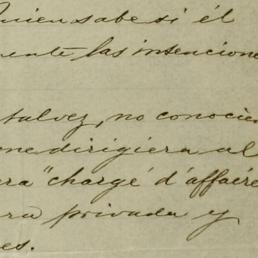 Quien sabe si él
mente las intencione
talvez, no conocien
me dirigiera al
era "chargé d'affaire
ra privada y
es.